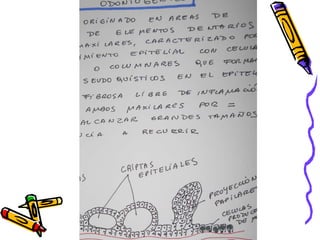 ODONTOGENI
ORIGINADO EN AREAS DE
DE ELEMENTOS DENTARIOS
MAXILARES, CARACTERIZADO POR
IMIENTO EPITELIAL CON CELULA
O COLUMNARES QUE FORMA
SEUDOQUÍSTICOS EN EL EPITEL
FIBROSA LIBRE DE INFLAMACIÓ
AMBOS MAXILARES POR =
ALCANZAR GRANDES TAMAÑOS
NCIA A RECURRIR
CRIPTAS
EPITELIALES
PROYECCIÓN
PAPILARE
CELULAS
PRODUCT
DE